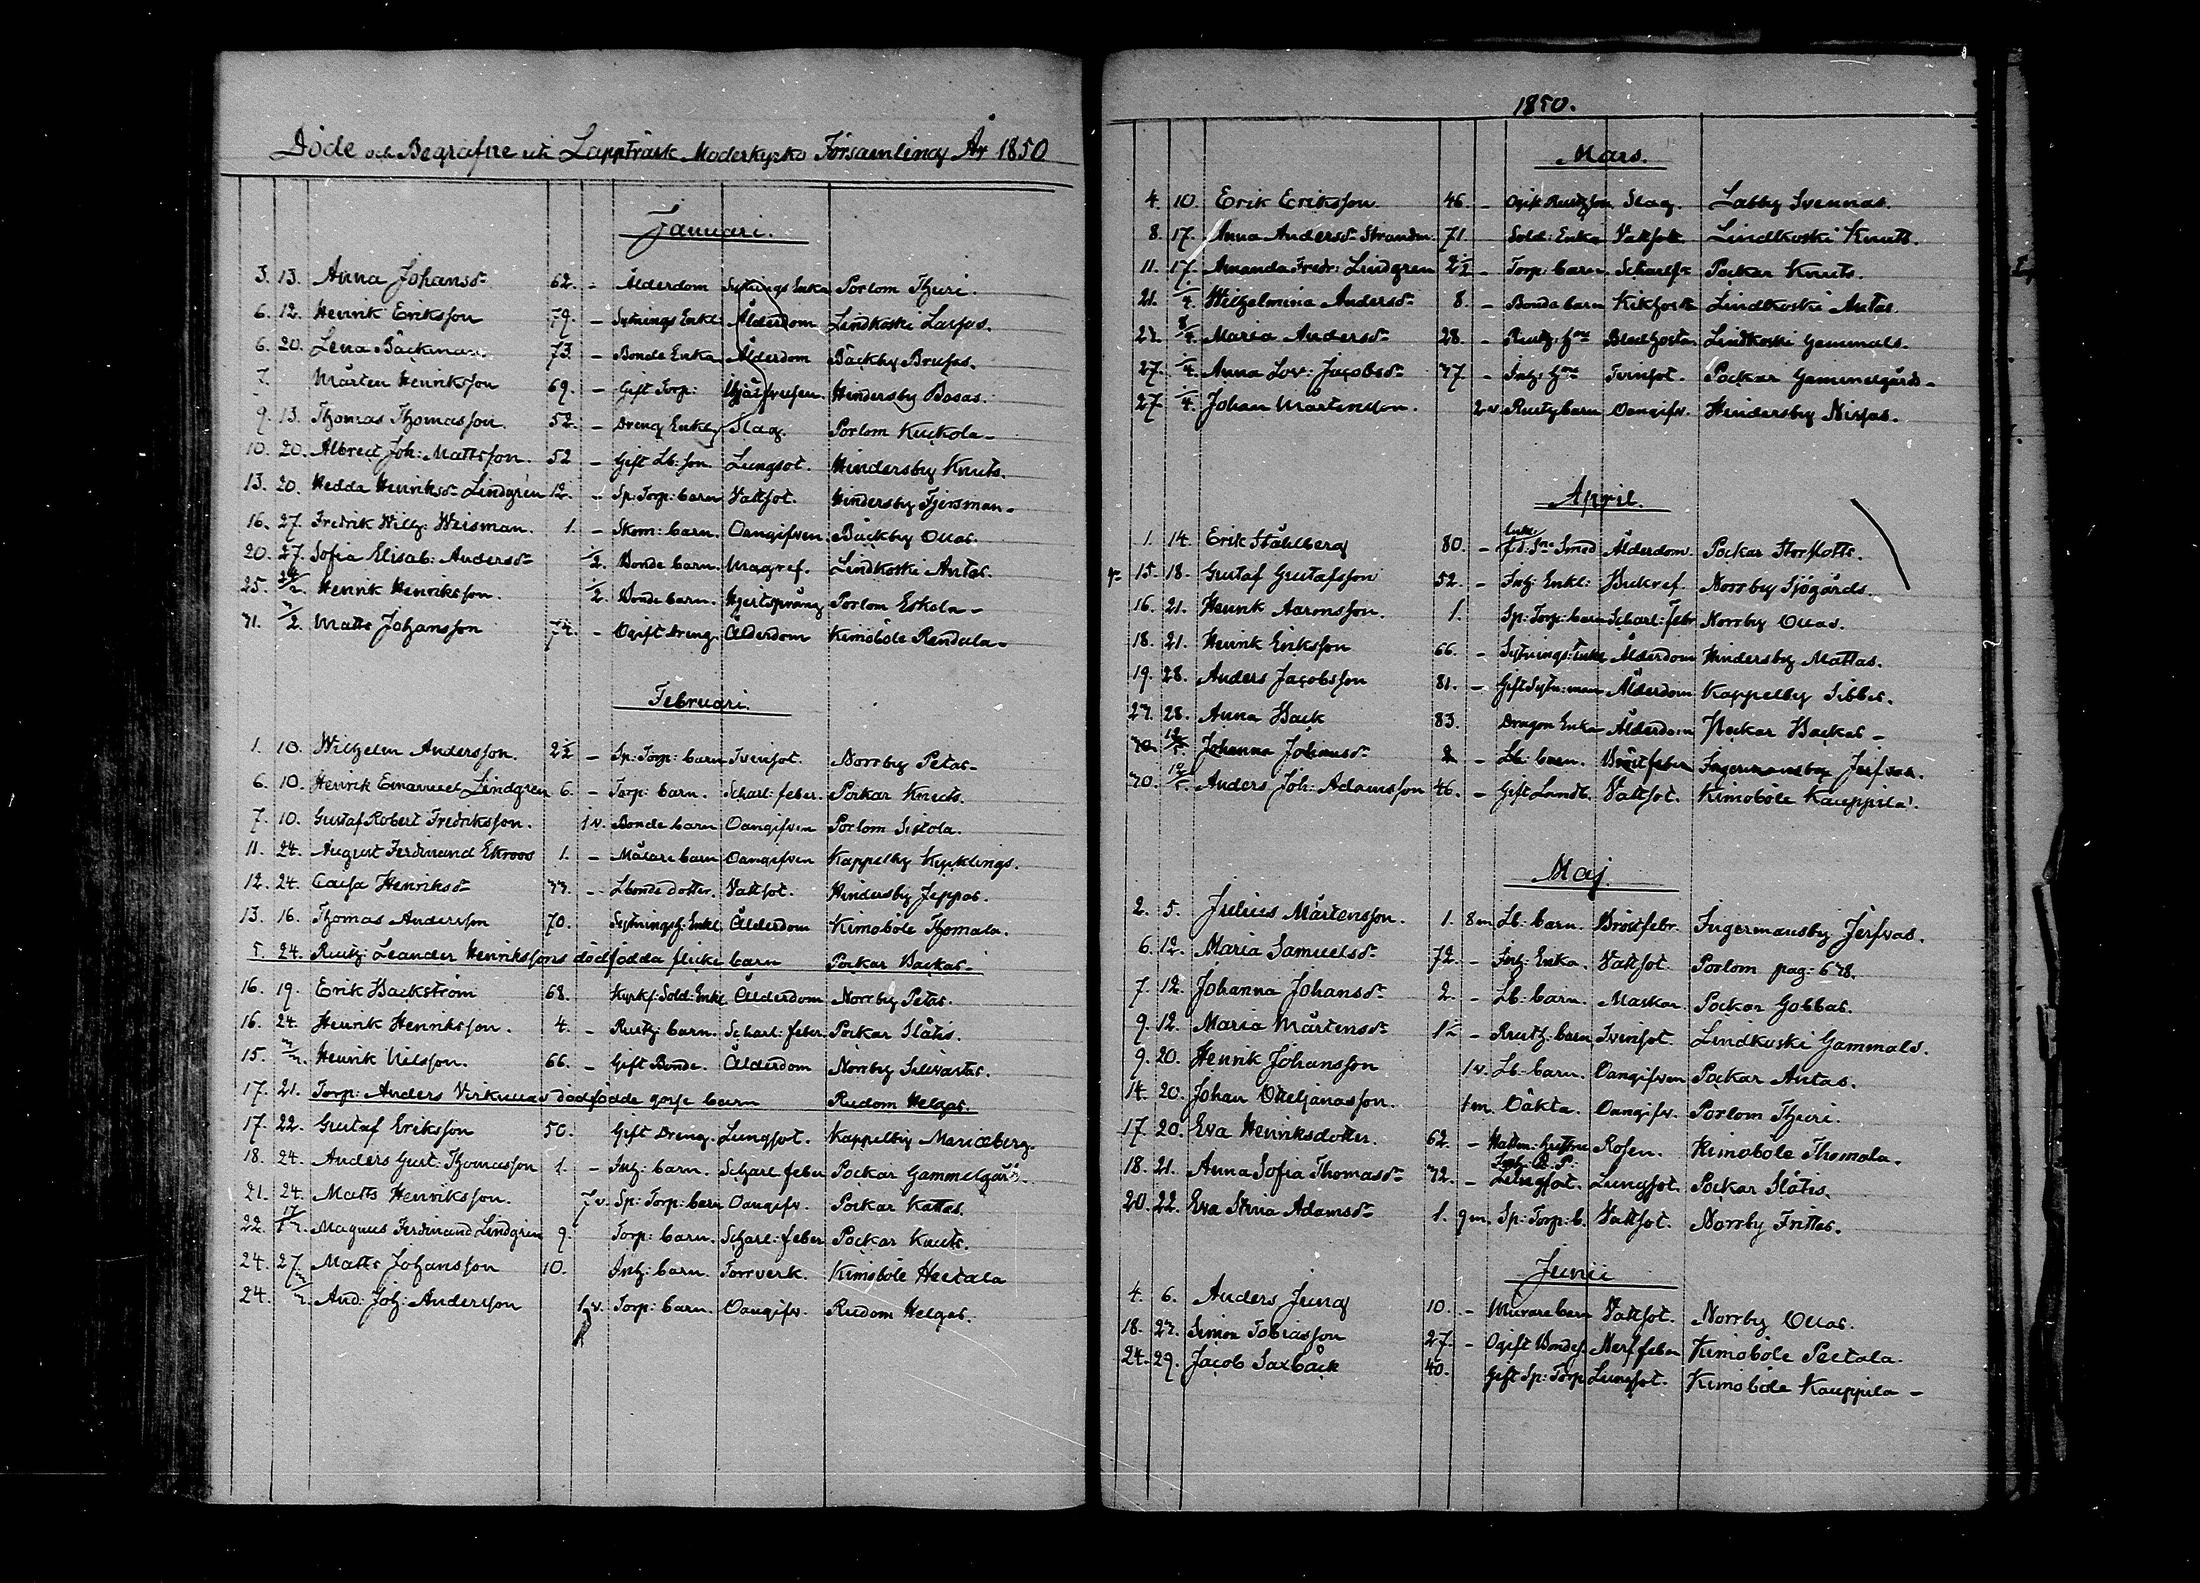 Döde och Begrafne uti Lappträsk Moderkyrko Församling År 1850
Januari.
3. 13. Anna Johansd:r 62. - Ålderdom Sytnings Enka Porlom Thuri.
6. 12. Henrik Eriksson 79. - Sytnings Enkl: Ålderdom Lindkoski Larsas.
6. 20. Lena Bäckman 73. - Bonde Enka Ålderdom Bäckby Brusas.
7. Mårten Henriksson 69. - Gift Torp: Hindersby Bosas.
9. 13. Thomas Thomasson. 52. - Dreng Enkl: Slag. Porlom Kuckola -
10. 20. Albrect Joh: Mattsson. 52 - Gift Lb: son. Lungsot. Hindersby Knuts.
13. 20. Hedda Henriksd:r Lindgrén 12. - Sp: Torp: barn Vattsot. Hindersby Fjersman -
16. 27. Fredrik Wilh: Weisman. 1. - Skom: barn. Oangifven Bäckby Ollas.
20. 27. Sofia Elisab: Andersd:r 1/2. Bonde barn. Magref. Lindkoski Antas.
25. 24/2. Henrik Henriksson. 1/2. Bonde barn. Hjertsprång Porlom Eskola -
31. 3/2. Matts Johansson 74. - Ogift Dreng. Ålderdom Kimoböle Rendala -
Februari.
1. 10. Wilhelm Andersson. 2 1/2 - Sp: Torp: barn Tvinsot. Norrby Petas -
6. 10. Henrik Emanuel Lindgren 6. - Torp: barn. Scharl: feber. Pockar Knuts.
7. 10. Gustaf Robert Fredriksson. 1 v. Bonde barn Oangifven Porlom Sistola.
11. 24. August Ferdinand Ekroos 1. - Målare barn Oangifven Kappelby Kycklings.
12. 24. Caisa Henriksd:r 33. - Lbonde dotter. Vattsot. Hindersby Jeppas.
13. 16. Thomas Andersson 70. Sytningsh: Enkl. Ålderdom Kimoböle Thomala.
5. 24. Rusth: Leander Henrikssons dödfödda flicke barn Pockar Backas -
16. 19. Erik Backström 68. Kyrkf: Sold: Enkl Ålderdom Norrby Petas.
16. 24. Henrik Henriksson. 4. - Rusth: barn. Scharl: feber Pockar Slätis.
15. 3/3. Henrik Nilsson. 66. - Gift Bonde. Ålderdom Norrby Silvastas.
17. 21. Torp: Anders Virkmans dödfödde gosse barn Rudom Helgas.
17. 22. Gustaf Eriksson 50. Gift Dreng. Lungsot. Kappelby Mariæberg
18. 24. Anders Gust. Thomasson 1. - Inh: barn. Scharl feber Pockar Gammelgårds.
21. 24. Matts Henriksson. 7 v. Sp: Torp: barn Oangifv. Pockar Kattas.
22. 17/3. Magnus Ferdinand Lindgrén 9. Torp: barn. Scharl: feber Pockar Knuts.
24. 27. Matts Johansson 10. Inh: barn. Torrverk. Kimoböle Heetala
24. 3/3. And: Joh: Andersson 1 v. Torp: barn. Oangifv. Rudom Helgas.
1850.
Mars.
4. 10. Erik Eriksson 46. - Ogift Rusthson Slag. Labby Svennas.
8. 17. Anna Andersd:r Strandm. 71. Sold: Enka Vattsot. Lindkoski Knuts.
11. 17. Amanda Fredr: Lindgren 2 1/2 - Torp: barn. Scharlf:r Pockar Knuts.
21. 1/4. Wilhelmina Andersd:r 8. - Bonde barn Kikhosta Lindkoski Antas.
23. 8/4. Maria Andersd:r 28. - Rusth: h:ru Blodhosta Lindkoski Gammals -
27. 1/4. Anna Lov: Jacobsd:r 77. - Inh: h:ru Tvinsot. Pockar Gammelgårds -
27. 1/4. Johan Mårtensson. 2 v. Rusth barn Oangifv. Hindersby Nissas.
April.
1. 14. Erik Ståhlberg 80. - Enkl: f.d. Sme Smed Ålderdom. Pockar Storslotts.
15. 18. Gustaf Gustafsson 52. - Inh: Enkl: Bukref Norrby Sjögårds.
16. 21. Henrik Aaronsson. 1. Sp: Torp: barn Scharl: febr Norrby Ollas.
18. 21. Henrik Eriksson 66. - Sytnings: Enkl Ålderdom Hindersby Mattas.
19. 28. Anders Jacobsson 81. - Gift Sytn: man Ålderdom Kappelby Sibbes.
23. 28. Anna Back 83. Dragon Enka Ålderdom Pockar Backas -
30. 12/5. Johanna Johansd:r 2 - Lb: barn. Bröstfeber Ingermansby Jerfvas.
30. 12/5. Anders Joh: Adamsson 46. - Gift Landb. Vattsot. Kimoböle Kauppila.
Maj.
2. 5. Julius Mårtensson. 1. 8 m Lb: barn. Bröstfebr. Ingermansby Jerfvas.
6. 12. Maria Samuelsd:r 72. - Inh: Enka. Vattsot. Porlom pag: 678.
7. 12. Johanna Johansd:r 2. - Lb: barn. Maskar. Pockar Gobbas.
9. 12. Maria Mårtensd:r 1 1/2 - Rusth: barn Tvinsot. Lindkoski Gammals.
9. 20. Henrik Johansson 1 v. Lb: barn. Oangifven Pockar Antas.
14. 20. Johan Otteljanasson. 1 m. Oäkta. Oangifv. Porlom Thuri.
17. 20. Eva Henriksdotter. 62. - Rosen. Kimoböle Thomala.
18. 21. Anna Sofia Thomasd:r 32. - Lungsot. Lungsot. Pockar Slätis.
20. 22. Eva Stina Adamsd:r 1. 9 m. Sp: Torp: b. Vattsot. Norrby Frittas.
Junii
4. 6. Anders Jung 10. - Murare barn Vattsot. Norrby Ollas.
18. 23. Simon Tobiasson 27. - Ogift Bondes. Nerffeber Kimoböle Peetala.
24. 29. Jacob Saxbäck 40. Gift Sp: Torp Lungsot. Kimoböle Kauppila -